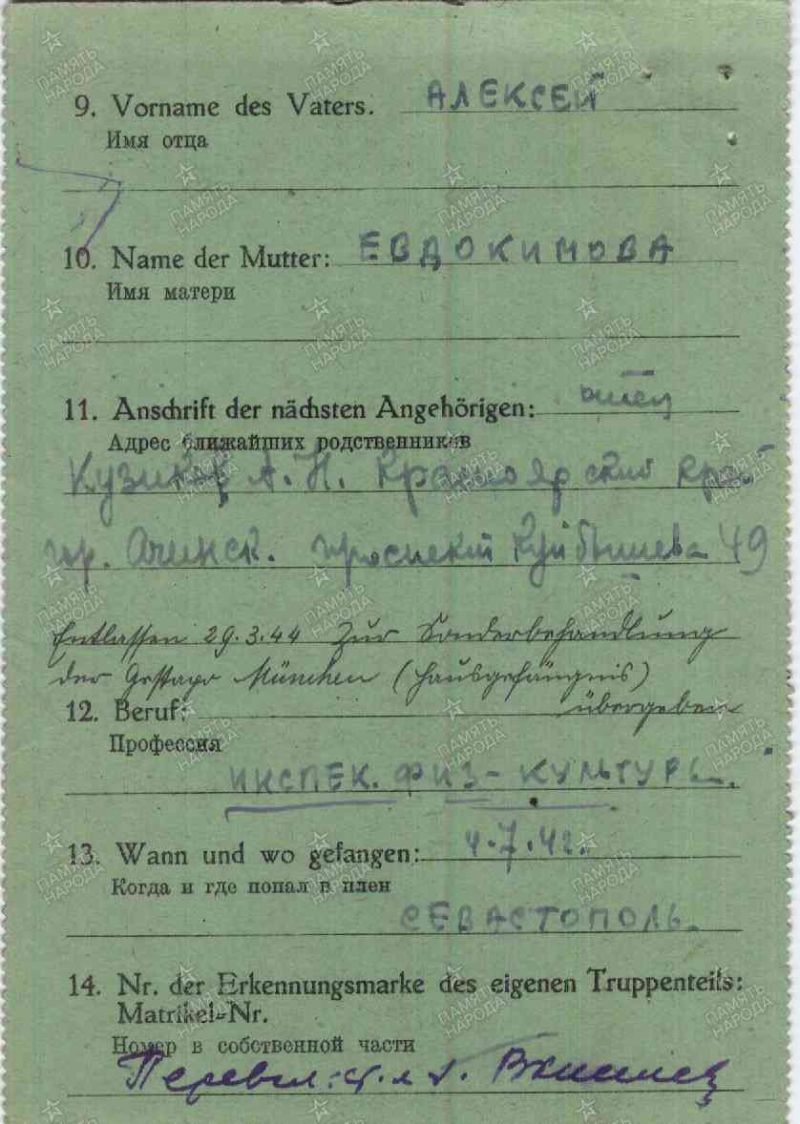 9. Vorname des Vaters. АЛЕКСЕЙ
Имя отца
10. Name der Mutter: ЕВДОКИМОВА
Имя матери
11. Anschrift der nächsten Angehörigen: отец
Адрес ближайших родственников
Кузиков А. Н. Красноярский край
гор. Ачинск. проспект Куйбышева 49
Entlassen 29.3.44 Zur Sonderbehandlung
der Gestapo München (Hausgefängnis)
übergeben
12. Beruf:
Профессия
ИНСПЕК. ФИЗ-КУЛЬТУРЫ.
13. Wann und wo gefangen: 4.7.42.
Когда и где попал в плен
СЕВАСТОПОЛЬ.
14. Nr. der Erkennungsmarke des eigenen Truppenteils:
Matrikel-Nr.
Номер в собственной части
Перевел:
ПАМЯТЬ
НАРОДА